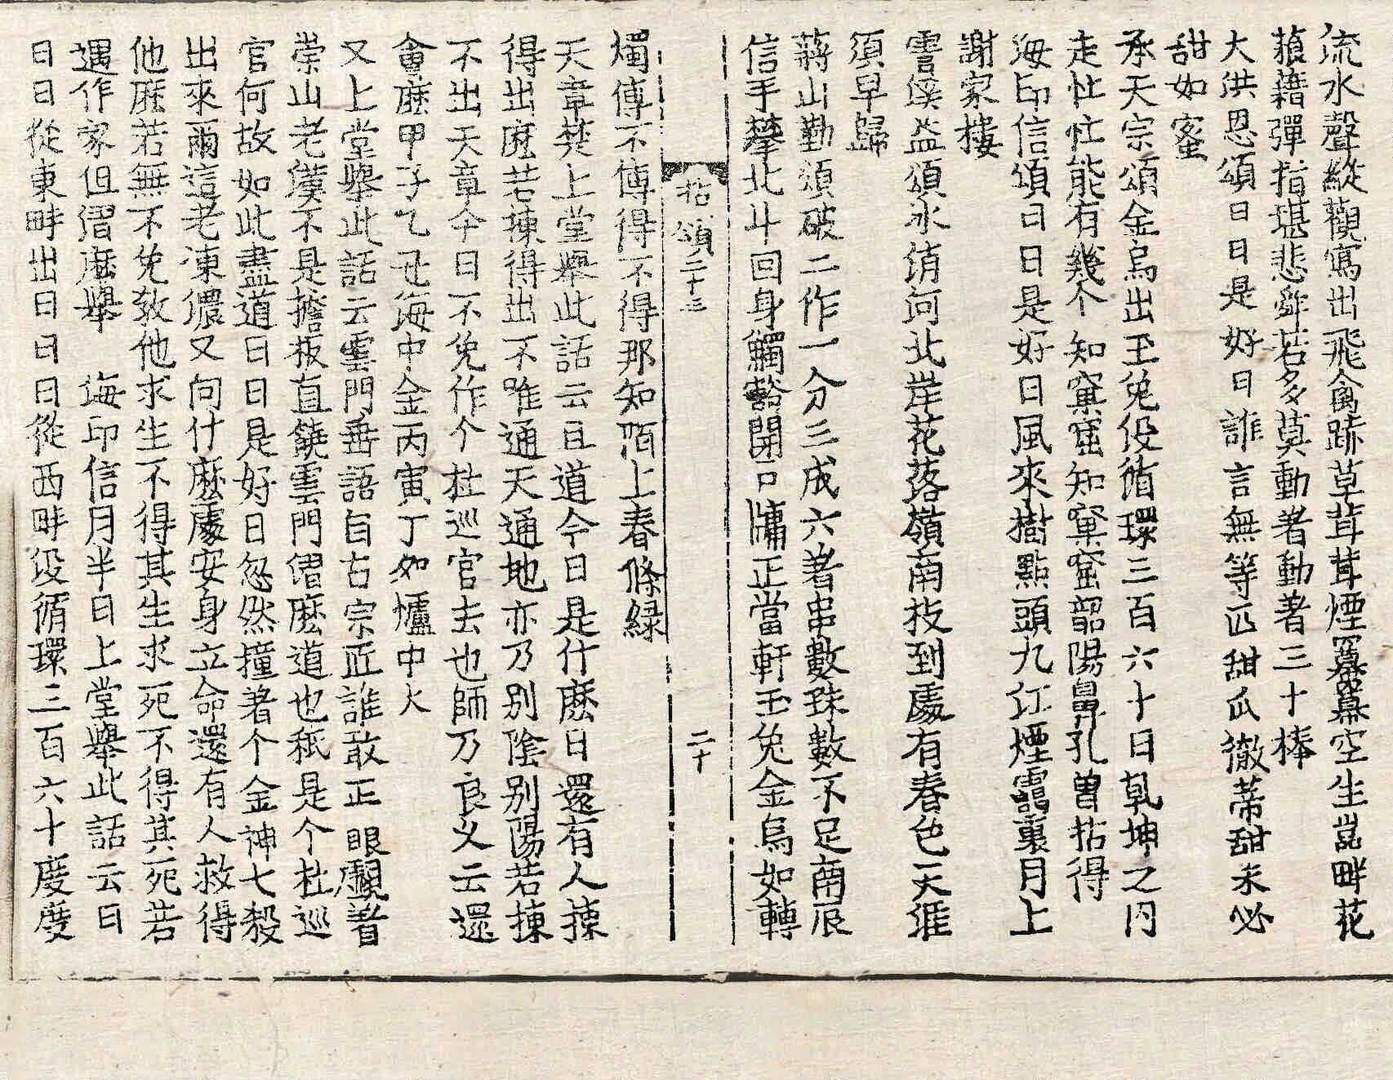 流水聲縱觀寫出飛禽跡草茸茸煙羃羃空生嵓畔花
狼籍彈指堪悲舜若多莫動著動著三十棒
大洪恩頌日日是好日誰言無等匹甜瓜徹蔕甜未必
甜如蜜
承天宗頌金烏出玉兔役循環三百六十日乹坤之內
走忙忙能有幾个知窠窟知窠窟韶陽鼻孔曾拈得
海印信頌日日是好日風來樹點頭九江煙靄裏月上
謝家樓
霅溪益頌氷銷河北岸花落嶺南枝到處有春色天涯
須早歸
蔣山勤頌破二作一分三成六著串數珠數不足南辰
信手攀北斗回身觸豁開戶牖正當軒玉兔金烏如轉
拈頌二十三 二十
燭傳不傳得不得那知陌上春條緑
天章㷊上堂舉此話云且道今日是什麽日還有人揀
得出麽若揀得出不唯通天通地亦乃別陰別陽若揀
不出天章今日不免作个杜巡官去也師乃良乆云還
會麽甲子乙丑海中金丙寅丁夘爐中火
又上堂舉此話云雲門垂語自古宗匠誰敢正眼覰著
崇山老漢不是擔板直饒雲門伊麽道也秖是个杜巡
官何故如此盡道日日是好日忽然撞著个金神七殺
出來爾這老凍儂又向什麽處安身立命還有人救得
他麽若無不免敎他求生不得其生求死不得其死若
遇作家但伊麽舉 海印信月半日上堂舉此話云日
日日從東畔出日日日從西畔役循環三百六十度度